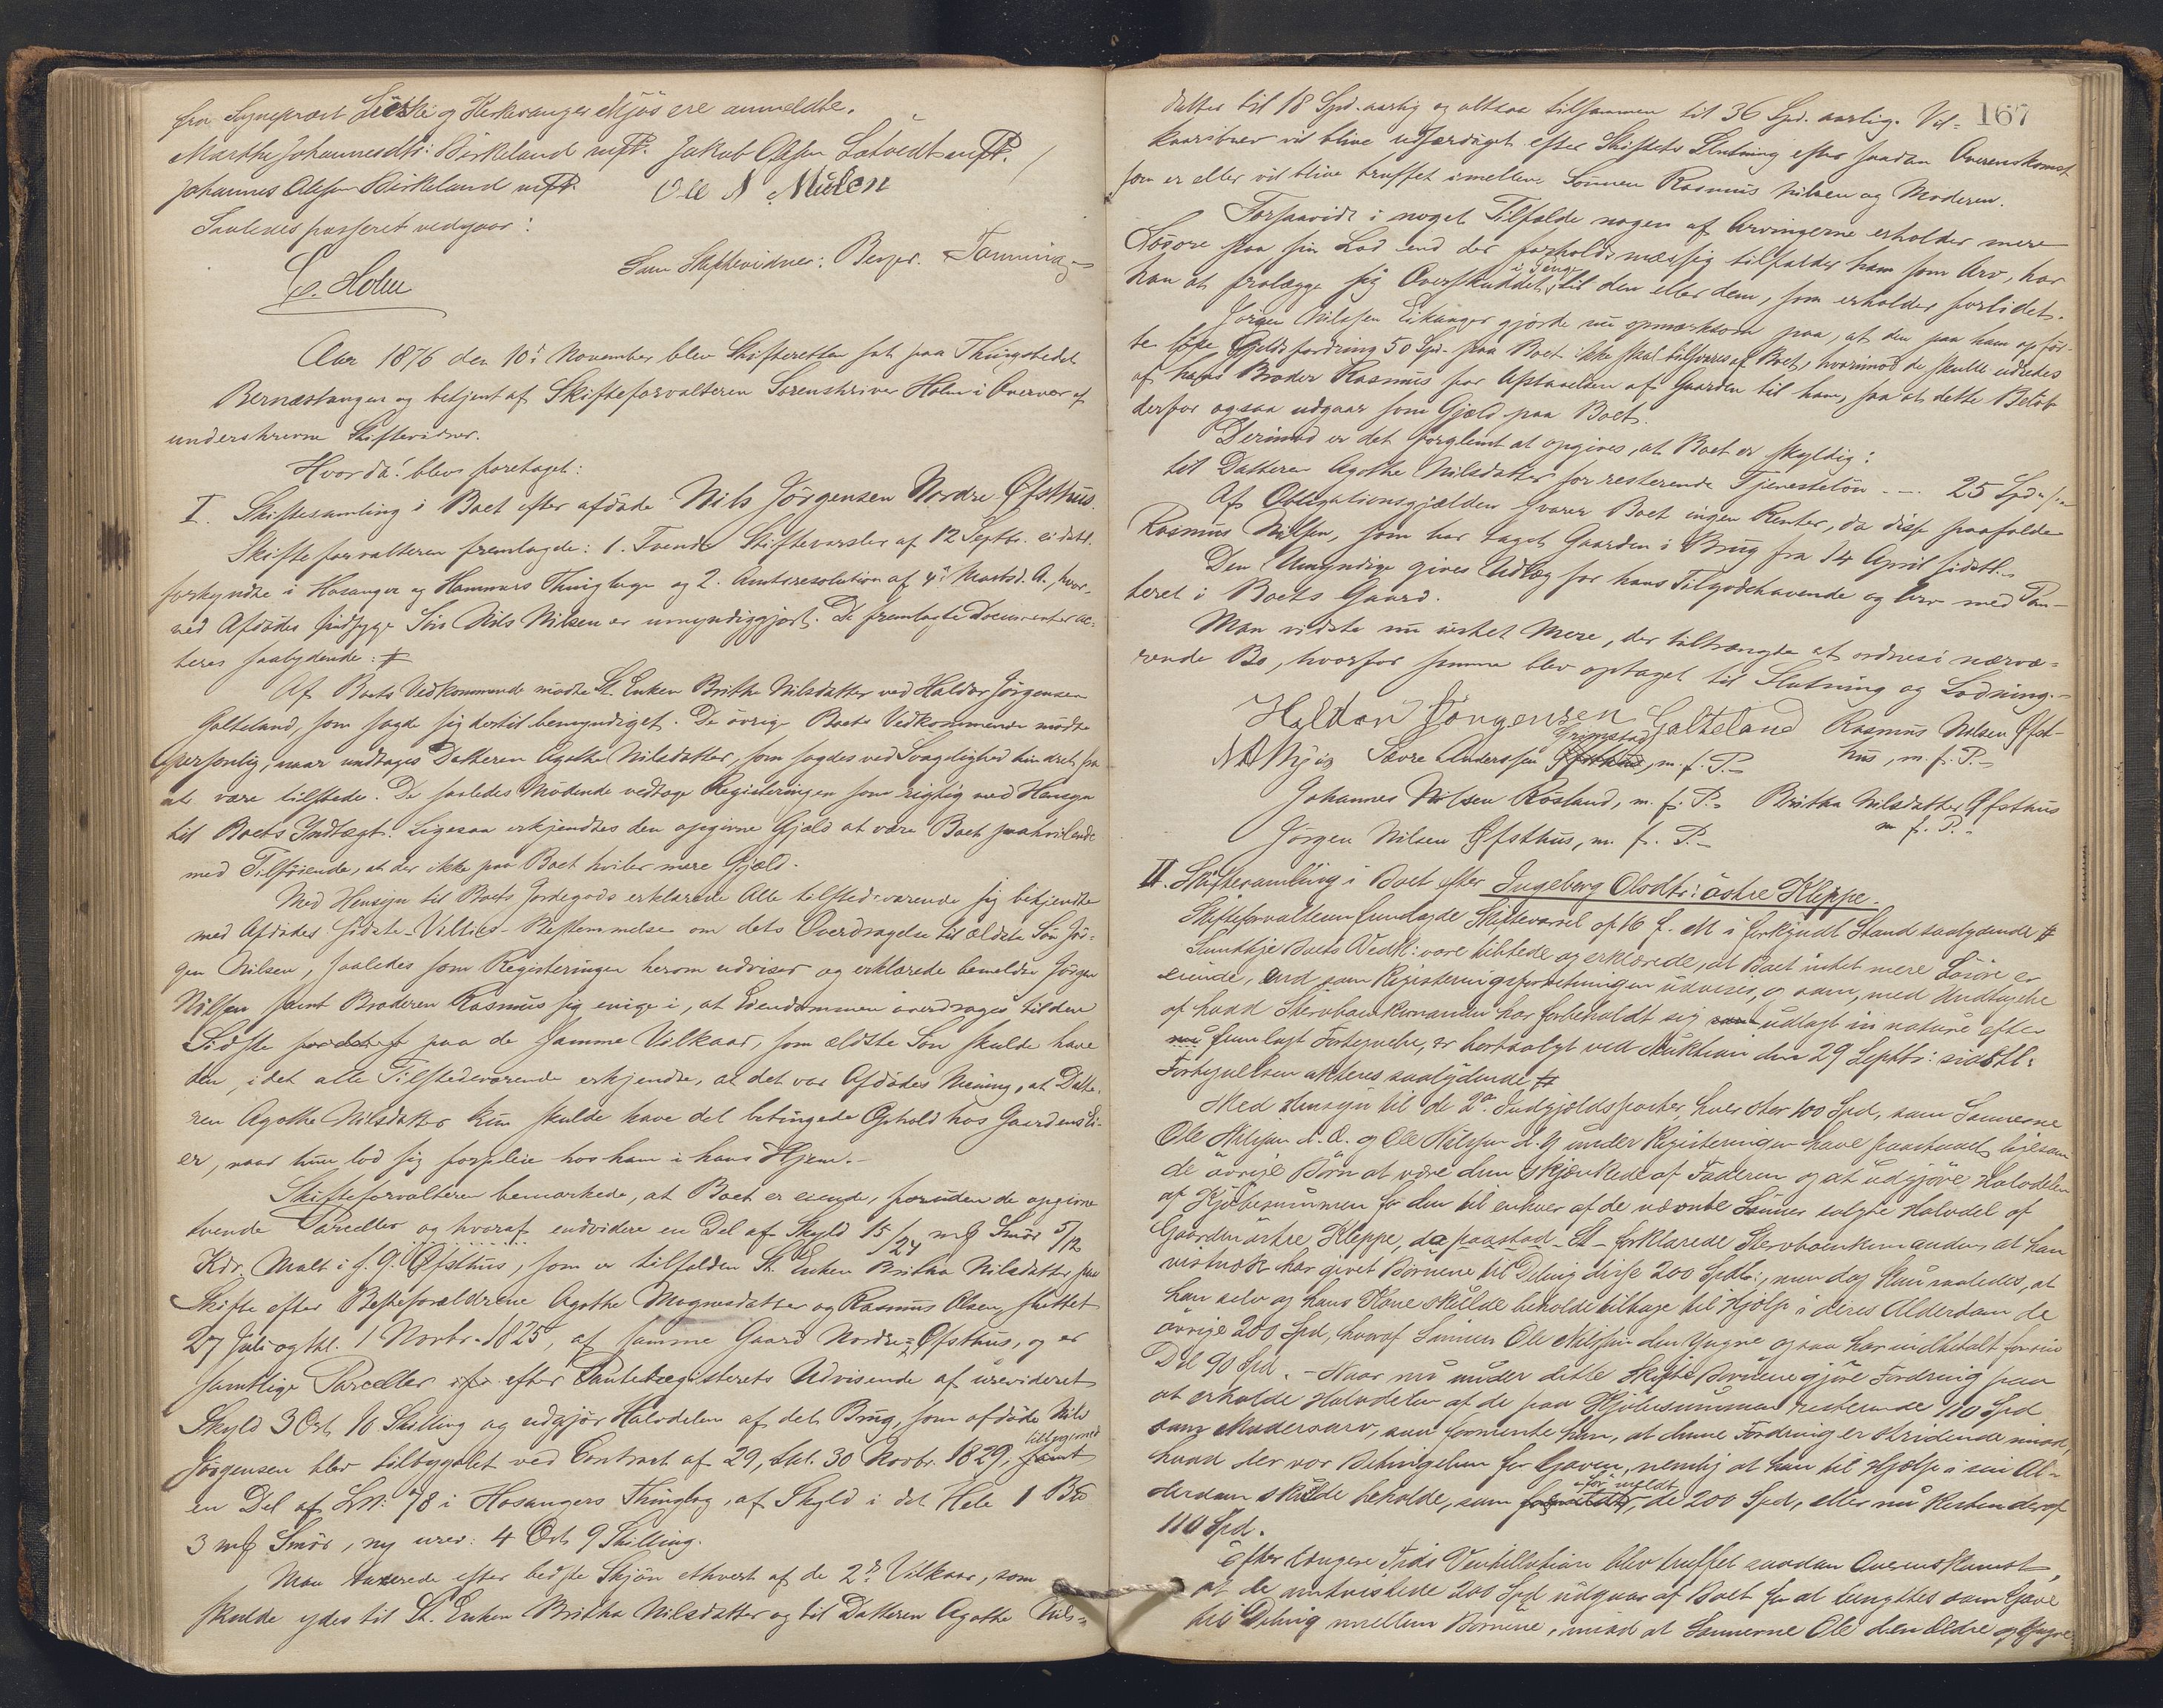 fra Sogneprest Lierske og Kirkesanger Mjøs ere anmeldte.
Marthe Johannesdtr: Birkeland mfP. Jakob Olsen Latvedt mfP.
Johannes Olsen Birkeland mfP. Ole N Mülen
Saaledes passeret vedgaar:
C. Holm Som Skiftevidner: Berger.
Aar 1876 den 10de November blev Skifteretten sat paa Thingstedet
Bernestangen og betjent af Skifteforvalteren Sorenskriver Holm i Overvær af
underskrevne Skiftevidner.
Hvor da blev foretaget:
I. Skiftesamling i Boet efter afdøde Nils Jörgensen Nordre Øfsthus.
Skifteforvalteren fremlagde: 1. Tvende Skiftevarsler af 12 Septbr. sidstl.
forkyndte i Hosanger og Hammers Thinglage og 2. Amtsresolution af 4de Marts d. A., hvor-
ved Afdødes sindsyge Søn Nils Nilsen er umyndiggjort. De fremlagte Documenter ac-
teres saalydende: #
Af Boets Vedkommende mødte St. Enken Britha Nilsdatter ved Haldor Jörgensen
Galteland, som sagde sig dertil bemyndiget. De øvrige Boets Vedkommende mødte
personlig, naar undtages Datteren Agathe Nilsdatter, som sagdes ved Svagelighed hindret fra
at være tilstede. De saaledes Mødende vedtoge Registeringen som rigtig med Hensyn
til Boets Indtægt. Ligesaa erkjendtes den opgivne Gjæld at være Boet paahvilende
med Tilføiende, at der ikke paa Boet hviler mere Gjæld.
Med Hensyn til Boets Jordegods erklærede Alle tilstedeværende sig bekjendte
med Afdødes sidste Villies-Bestemmelse om dets Overdragelse til ældste Søn Jör-
gen Nilsen, saaledes som Registeringen herom udviser og erklærede bemeldte Jörgen
Nilsen samt Broderen Rasmus sig enige i, at Eiendommen overdrages til den
Sidste paa de samme Vilkaar, som ældste Søn skulde have
den, idet alle Tilstedeværende erkjendte, at det var Afdødes Mening, at Datte-
ren Agathe Nilsdatter kun skulde have det betingede Ophold hos Gaardens Ei-
er, naar hun lod sig forpleie hos ham i hans Hjem.
Skifteforvalteren bemærkede, at Boet er eiende, foruden de opgivne
tvende Parceller og hvoraf endvidere en Del af Skyld 15/24 mß Smör 5/12
Kdr. Malt i f. G. Øfsthus, som er tilfalden St. Enken Britha Nilsdatter paa
Skifte efter Besteforældrene Agathe Mognesdatter og Rasmus Olsen sluttet
27 Juli og thl. 1 Novbr. 1825, af samme Gaard Nordre Øfsthus, og er
samtlige Parceller efter Pantebregisterets Udvisende af urevideret
Skyld 3 Ort 10 Skilling og udgjör Halvdelen af det Brug, som afdøde Nils
Jörgensen blev tilbygslet ved Contract af 29, thl. 30 Novbr. 1829, samt
en Del af LN: 78 i Hosangers Thinglag, af Skyld i det Hele 1 Bß
3 mß Smör, ny urev: 4 Ort 9 Skilling.
Man taxerede efter bedste Skjøn ethvert af de 2de Vilkaar, som
skulde ydes til St. Enken Britha Nilsdatter og til Datteren Agathe Nils-
167
datter til 18 Spd. aarlig og altsaa tilsammen til 36 Spd. aarlig. Vil-
kaarsbrev vil blive udfærdiget efter Skiftets Slutning efter saadan Overenskomst
som er eller vil blive truffet imellem Sønnen Rasmus Nilsen og Moderen.
Forsaavidt i noget Tilfælde nogen af Arvingerne erholder mere
Løsøre paa sin Lod end der forholdsmæssig tilfalder ham som Arv, har
i Penge
han at fralægge sig Overskuddet til den eller dem, som erholder forlidet.
Jörgen Nilssen Eikanger gjorde nu opmærksom paa, at den paa ham opför-
te Gjeldsfordring 50 Spd. paa Boet ikke skal tilsvares af Boet, hvorimod de skulle udredes
af hans Broder Rasmus for Afstaaelsen af Gaarden til ham, saa at dette Beløb
derfor ogsaa udgaar som Gjæld paa Boet.
Derimod er det forglemt at opgives, at Boet er skyldig:
til Datteren Agathe Nilsdatter for resterende Tjenesteløn - - - 25 Spd.
Af Obligationsgjælden svarer Boet ingen Renter, da disse paafalder
Rasmus Nilsen, som har taget Gaarden i Brug fra 14 April sidstl.
Den Umyndige gives Udlæg for hans Tilgodehavende og Arv med Pan-
teret i Boets Gaard.
Man vidste nu intet Mere, der tiltrængte at ordnes i nærvæ-
rende Bo, hvorfor samme blev optaget til Slutning og Lodning.
Haldor Jörgensen Galteland Rasmus Nilsen Øfst-
hus, m. f. P.
Grimstad
N A Mjøs Sjure Anderssen Øfsthus, m. f. P.
Johannes Nilsen Røsland, m. f. P. Britha Nilsdatter Øfsthus
m. f. P.
Jörgen Nilsen Øfsthus, m. f. P.
II. Skiftesamling i Boet efter Ingeborg Olsdtr: østre Kleppe.
Skifteforvalteren fremlagde Skiftevarsel af 16 f. M. i forkyndt Stand saalydende #
Samtlige Boets Vedk: vare tilstede og erklærede, at Boet intet mere Løsøre er
eiende, end som Registeringsforretningen udviser, og som, med Undtagelse
af hvad Stervboenkemanden har forbeholdt sig udlagt in natura efter
nu fremlagt Fortegnelse, er bortsolgt ved Auktion den 29 Septbr: sidstl:
Fortegnelsen akteres saalydende #
Med Hensyn til de 2de Indgjældsposter, hver stor 100 Spd, som Sønnerne
Ole Nilsen d. Æ. og Ole Nilsen d. Y. under Registeringen have paastaaet ligesom
de øvrige Børn at være dem skjænkede af Faderen og at udgjöre Halvdelen
af Kjøbesummen for den til enhver af de nævnte Sønner solgte Halvdel af
Gaarden østre Kleppe, da forklarede Stervboenkemanden, at han
vistnok har givet Børnene til Deling disse 200 Spdlr:, men dog kun saaledes, at
han selv og hans Kone skulde beholde tilbage til Hjælp i deres Alderdom de
øvrige 200 Spd, hvoraf Sønnen Ole Nilssen den Yngre ogsaa har indbetalt for sin
Del 90 Spd. - Naar nu under dette Skifte Børnene gjöre Fordring paa
at erholde Halvdelen af de paa Kjøbesummen resterende 110 Spd
som Modersarv, saa formente han, at denne Fordring er stridende imod,
hvad der var Betingelsen for Gaven, nemlig at han til Hjælp i sin Al-
för meldt
derdom skulde beholde, som de 200 Spd, eller nu Resten deraf
110 Spd.
Efter længere Tids Ventillation blev truffet saadan Overenskomst
at de omtvistede 200 Spd udgaar af Boet for at benyttes som Gave
til Deling mellem Børnene, imod at Sønnerne Ole den Ældre og Yngre